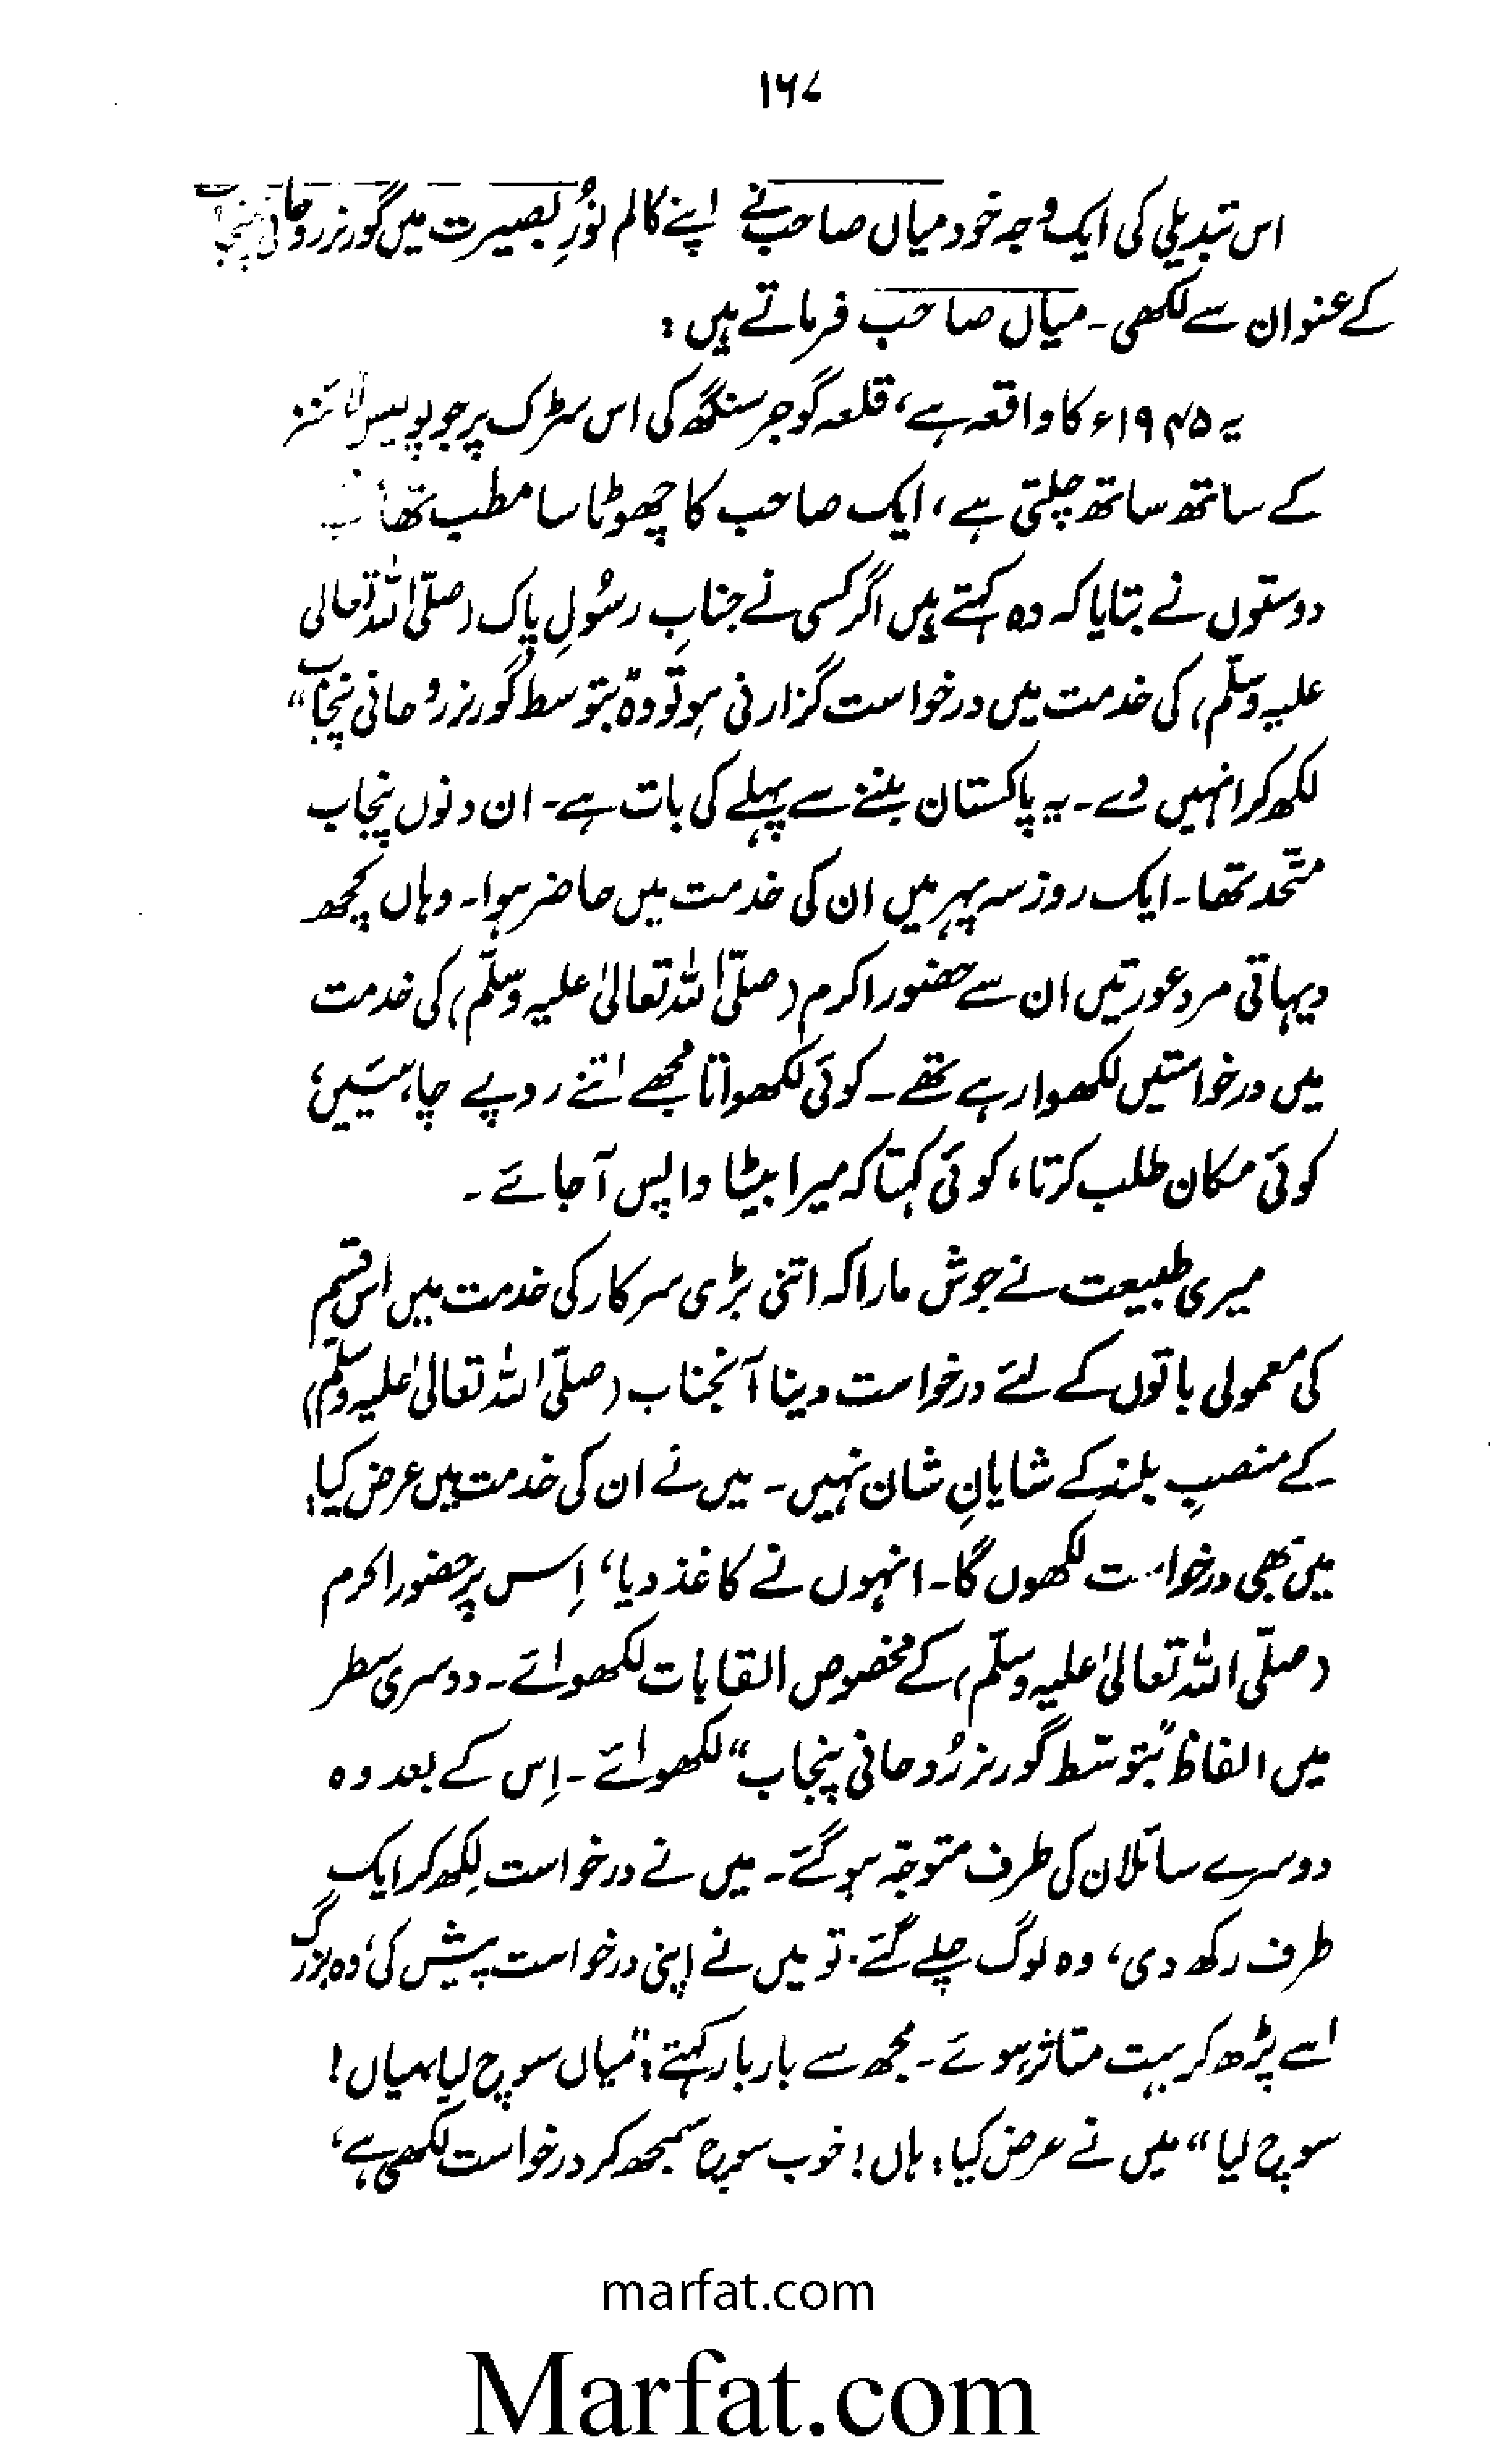 ۱۶۷
اس تبدیلی کی ایک وجہ خود میاں صاحب نے اپنے کالم نورِ بصیرت میں گورنر روحانی پنجاب
کے عنوان سے لکھی۔ میاں صاحب فرماتے ہیں:
یہ ۱۹۴۵ء کا واقعہ ہے، قلعہ گوجر سنگھ کی اس سڑک پر جو پولیس لائنز
کے ساتھ ساتھ چلتی ہے، ایک صاحب کا چھوٹا سا مطب تھا
دوستوں نے بتایا کہ وہ کہتے ہیں اگر کسی نے جنابِ رسُولِ پاک (صلّی اللہ تعالی
علیہ وسلّم) کی خدمت میں درخواست گزارنی ہو تو وہ ”بتوسط گورنر رُوحانی پنجاب“
لکھ کر انہیں دے۔ یہ پاکستان بننے سے پہلے کی بات ہے۔ ان دنوں پنجاب
متّحد تھا۔ ایک روز سہ پہر میں ان کی خدمت میں حاضر ہوا۔ وہاں کچھ
دیہاتی مرد عورتیں ان سے حضور اکرم (صلّی اللہ تعالیٰ علیہ وسلّم) کی خدمت
میں درخواستیں لکھوا رہے تھے۔ کوئی لکھواتا مُجھے اتنے روپے چاہئیں،
کوئی مکان طلب کرتا، کوئی کہتا کہ میرا بیٹا واپس آ جائے۔
میری طبیعت نے جوش مارا کہ اتنی بڑی سرکار کی خدمت میں اس قسم
کی معمولی باتوں کے لئے درخواست دینا آنجناب (صلّی اللہ تعالیٰ علیہ وسلّم)
کے منصبِ بلند کے شایانِ شان نہیں۔ میں نے ان کی خدمت میں عرض کیا:
میں بھی درخواست لکھوں گا۔ انہوں نے کاغذ دیا، اِس پر حضور اکرم
(صلّی اللہ تعالیٰ علیہ وسلّم) کے مخصوص القابات لکھوائے۔ دوسری سطر
میں الفاظ ”بتوسّط گورنر رُوحانی پنجاب“ لکھوائے۔ اِس کے بعد وہ
دوسرے سائلان کی طرف متوجّہ ہو گئے۔ میں نے درخواست لِکھ کر ایک
طرف رکھ دی، وہ لوگ چلے گئے۔ تو میں نے اپنی درخواست پیش کی، وہ بزرگ
اسے پڑھ کر بہت متاثر ہوئے۔ مجھ سے بار بار کہتے: ”میاں سوچ لیا، میاں!
سوچ لیا“ میں نے عرض کیا: ہاں! خوب سوچ سمجھ کر درخواست لکھی ہے،
marfat.com
Marfat.com